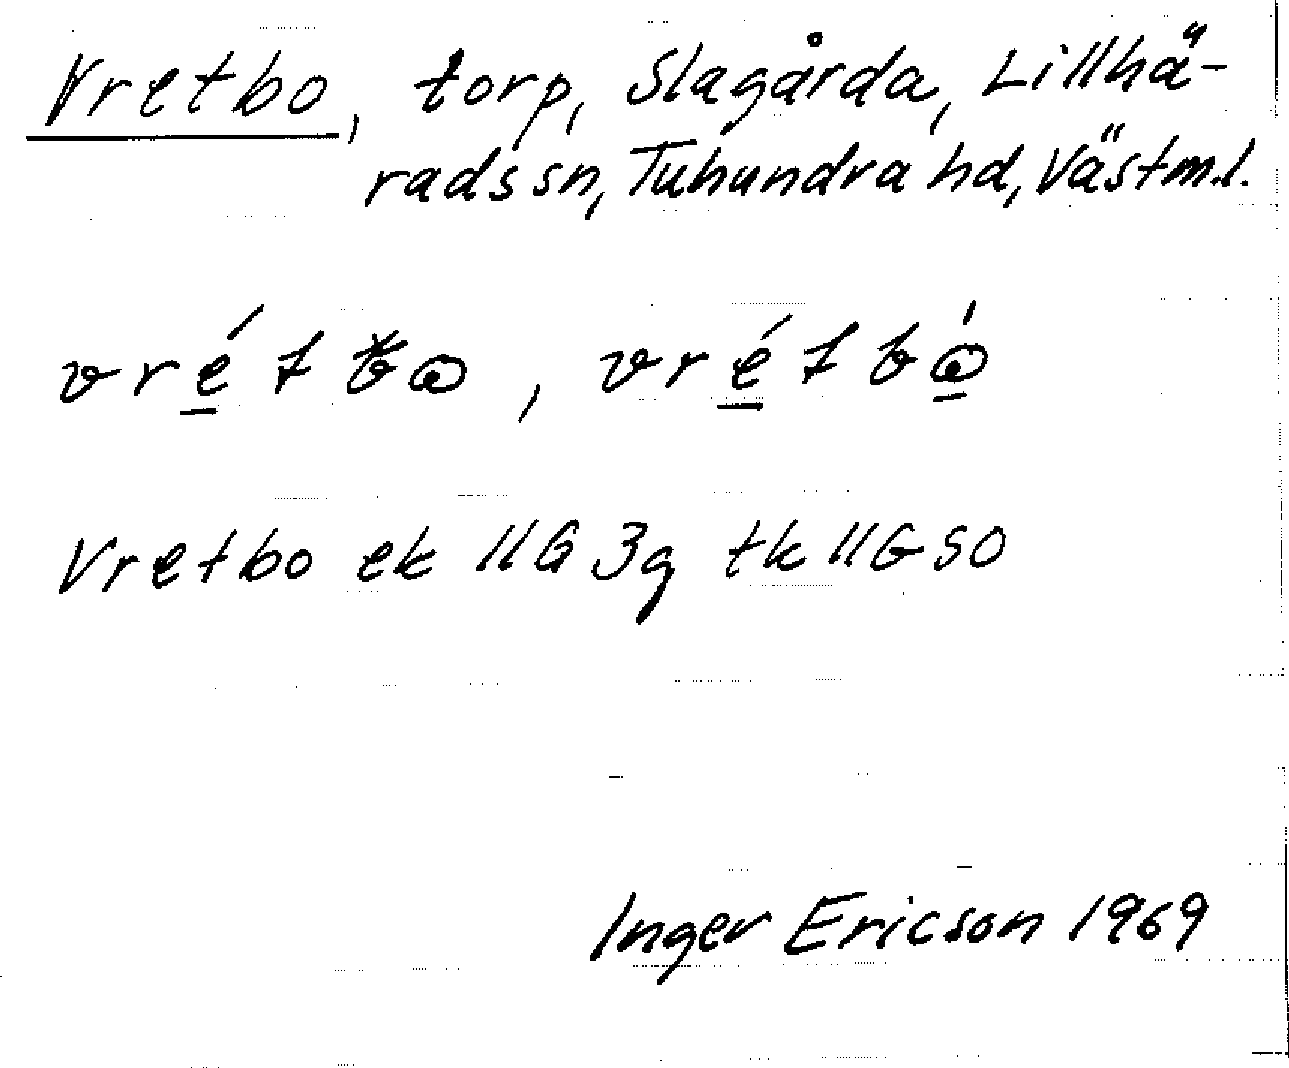 Vretbo, torp, Slagårda, Lillhä-
rads sn, Tuhundra hd, Västml.
Vretbo ek 11G 3g tk 11G SO
Inger Ericson 1969